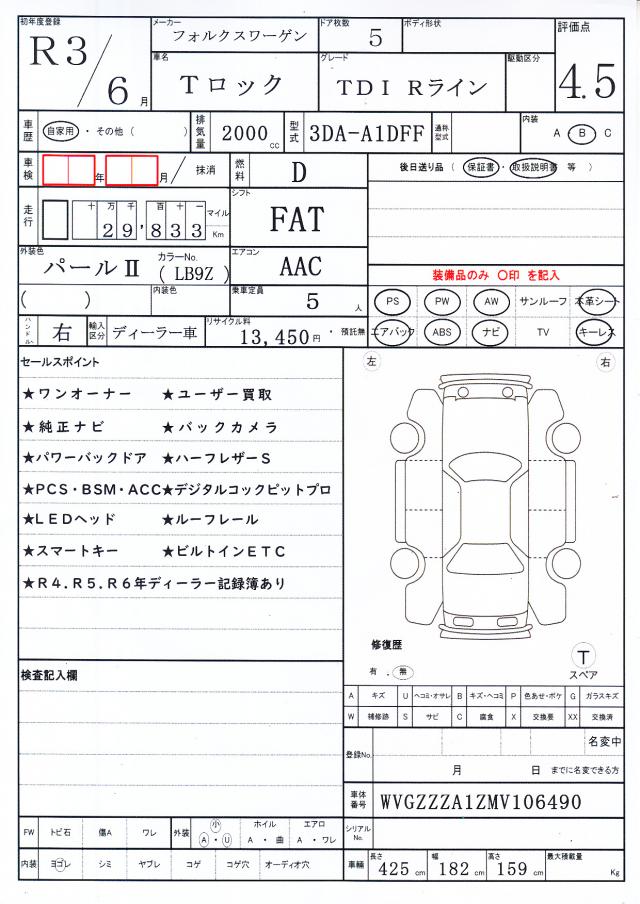 初年度登録 R3/6月 メーカー フォルクスワーゲン ドア枚数 5 ボディ形状 評価点 4.5
車名 Tロック グレード TDI Rライン 駆動区分
車歴 自家用・その他( ) 排気量 2000cc 型式 3DA-A1DFF 通称型式 内装 A・B C
車検 年 月 抹消 燃料 D 後日送り品 ( 保証書・取扱説明書 等 )
走行 十万千百十一 29,833 マイル Km シフト FAT
外装色 パールⅡ カラーNo. (LB9Z) エアコン AAC 装備品のみ 〇印 を記入
( ) 内装色 乗車定員 5人 PS PW AW サンルーフ 本革シート
ハンドル 右 輸入区分 ディーラー車 リサイクル料 13,450円・預託無 エアバック ABS ナビ TV キーレス
セールスポイント 左 右
★ワンオーナー ★ユーザー買取
★純正ナビ ★バックカメラ
★パワーバックドア ★ハーフレザーS
★PCS・BSM・ACC★デジタルコックピットプロ
★LEDヘッド ★ルーフレール
★スマートキー ★ビルトインETC
★R4.R5.R6年ディーラー記録簿あり
修復歴
有.無 T スペア
検査記入欄
A キズ U ヘコミ・オサレ B キズ・ヘコミ P 色あせ・ボケ G ガラスキズ
W 補修跡 S サビ C 腐食 X 交換要 XX 交換済
登録No. 名変中
月 日 までに名変できる方
車体番号 WVGZZZA1ZMV106490
FW トビ石 傷A ワレ 外装 小 A・U ホイル A・曲 エアロ A・ワレ シリアルNo.
内装 ヨゴレ シミ ヤブレ コゲ コゲ穴 オーディオ穴 車輛 長さ 425cm 幅 182cm 高さ 159cm 最大積載量 Kg